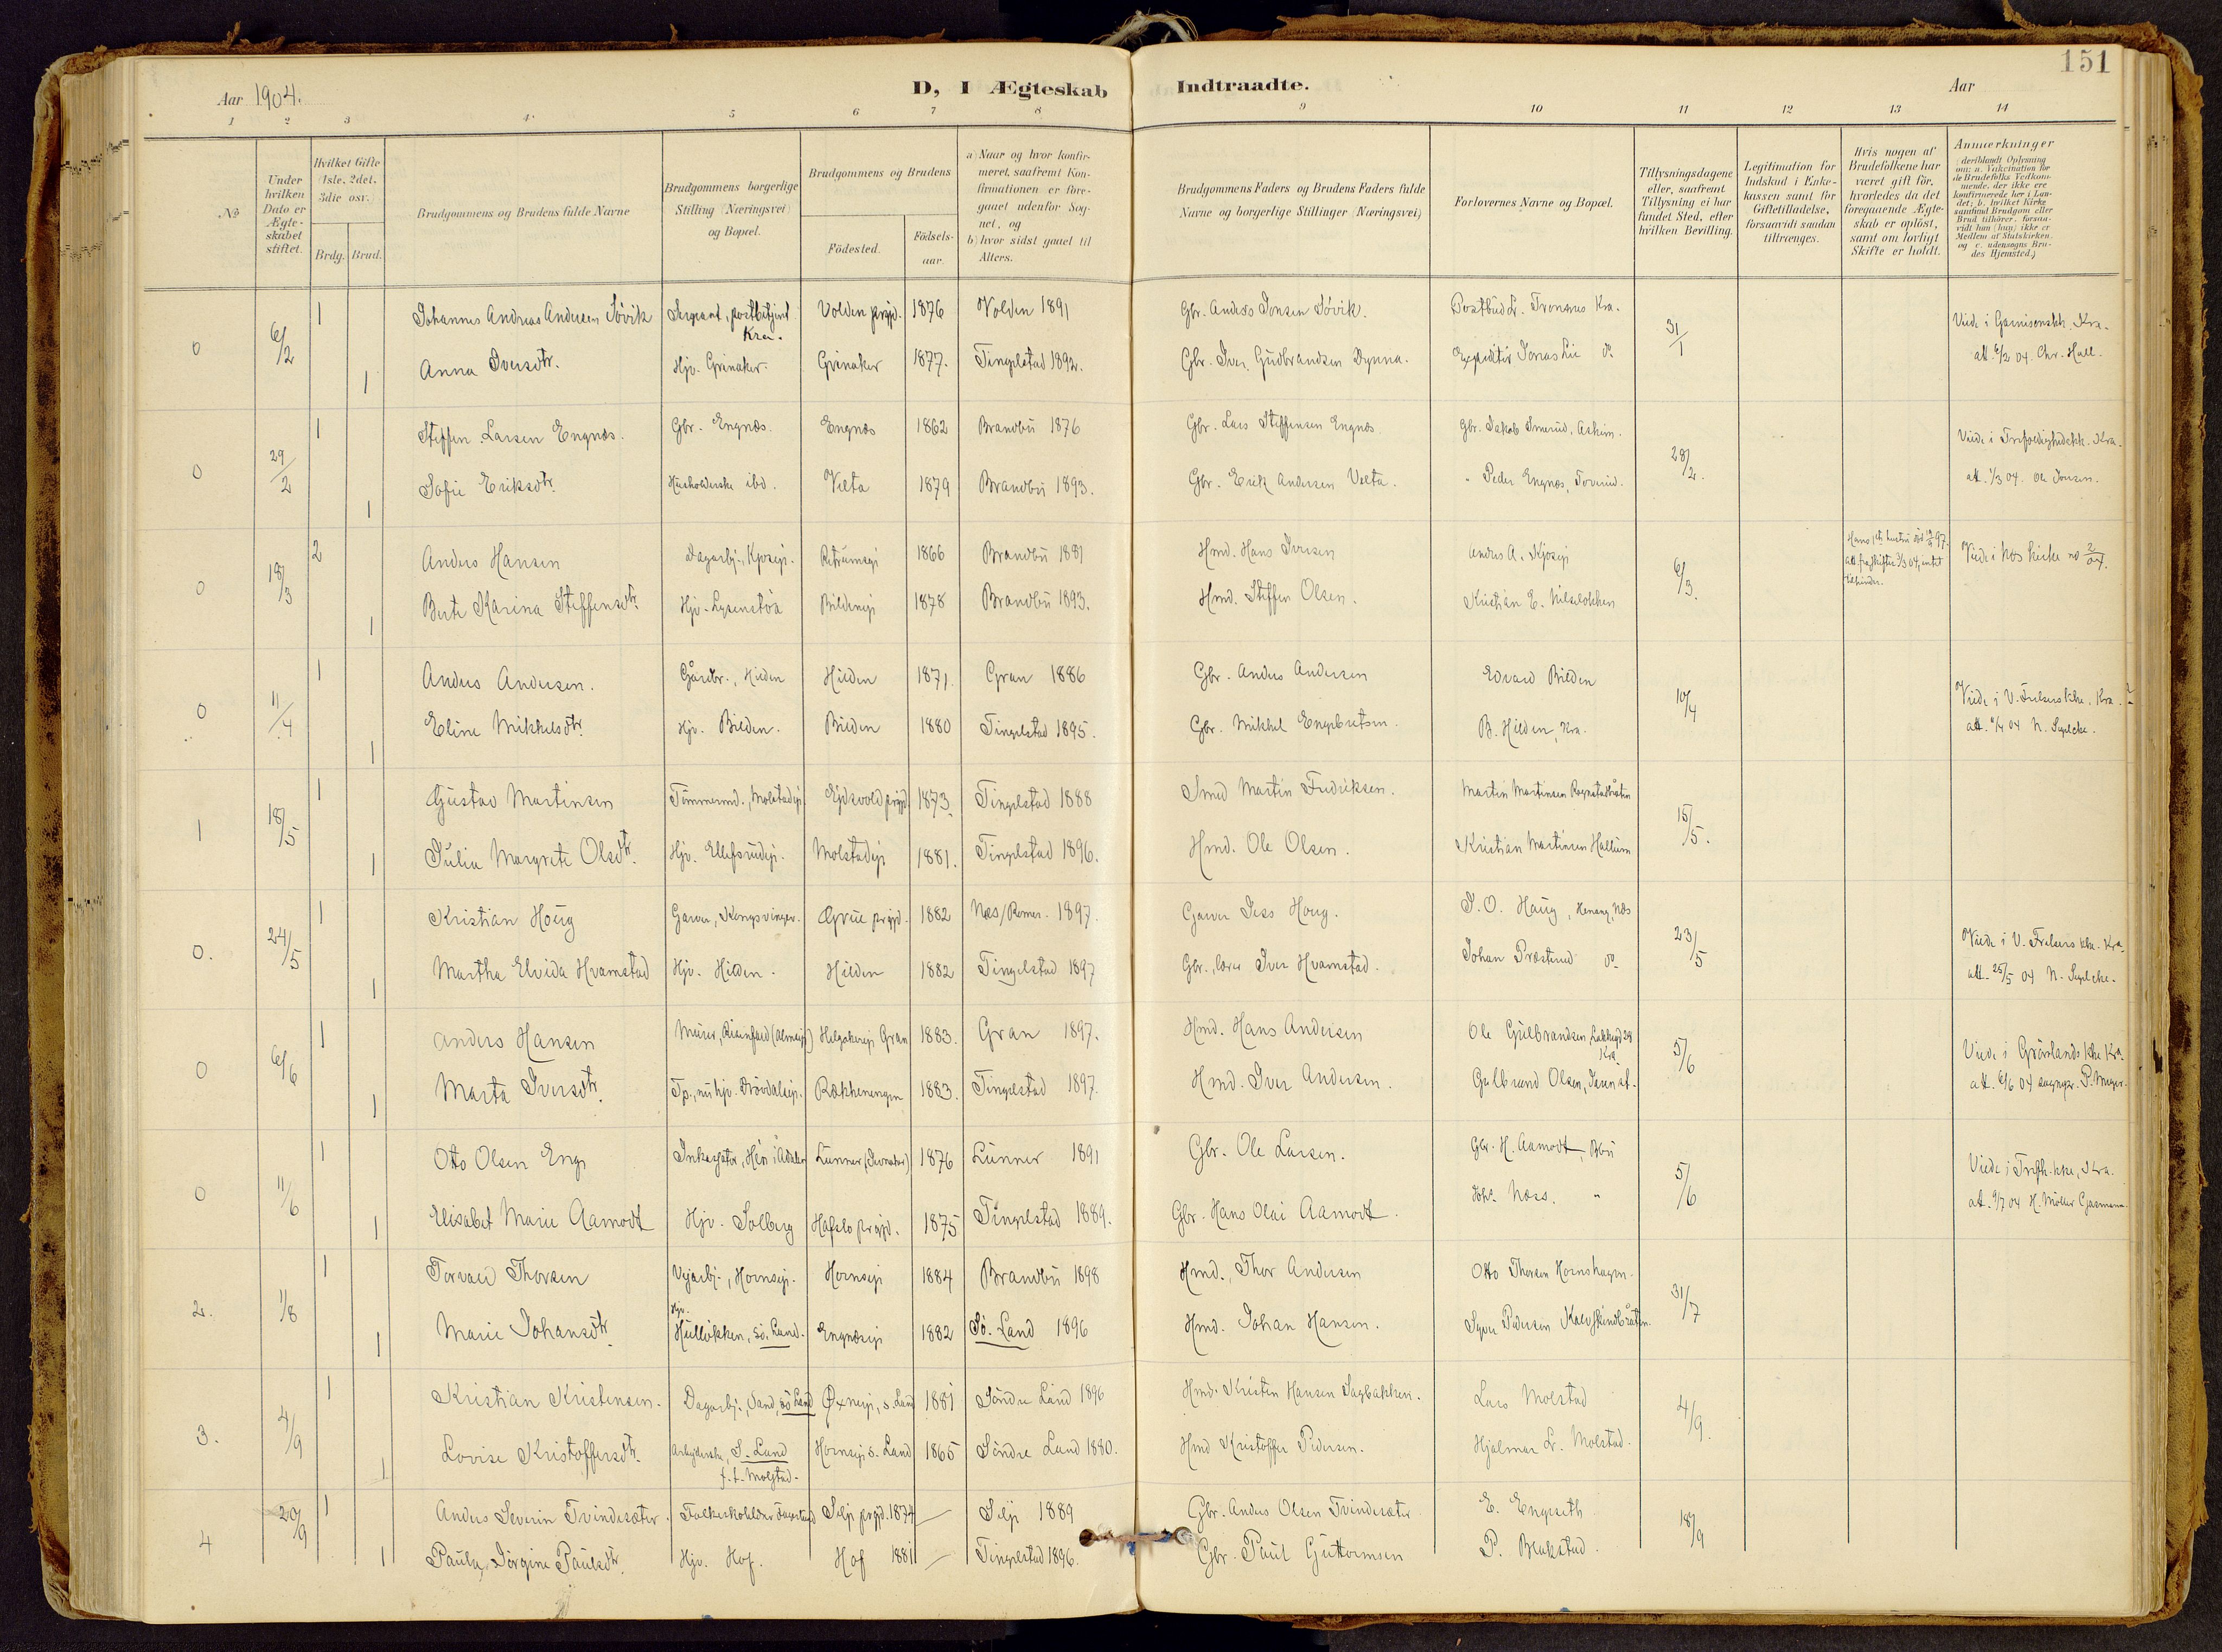 151
Aar 1904.
D, I Ægteskab Indtraadte.
Aar
1 2 3 4 5 6 7 8 9 10 11 12 13 14
No
Under hvilken Dato er Ægteskabet stiftet.
Hvilket Gifte (1ste, 2det, 3die osv.)
Brdg. Brud.
Brudgommens og Brudens fulde Navne
Brudgommens borgerlige Stilling (Næringsvei) og Bopæl.
Brudgommens og Brudens
Födested.
Födselsaar.
a) Naar og hvor konfirmeret, saafremt Konfirmationen er foregaaet udenfor Sognet, og
b) hvor sidst gaaet til Alters.
Brudgommens Faders og Brudens Faders fulde Navne og borgerlige Stillinger (Næringsvei)
Forlovernes Navne og Bopæl.
Tillysningsdagene eller, saafremt Tillysning ei har fundet Sted, efter hvilken Bevilling.
Legitimation for Indskud i Enkekassen samt for Giftetilladelse, forsaavidt saadan tiltrænges.
Hvis nogen af Brudefolkene har været gift för, hvorledes da det foregaaende Ægteskab er oplöst, samt om lovligt Skifte er holdt.
Anmærkninger
(deriblandt Oplysning om: a. Vakcination for de Brudefolks Vedkommende, der ikke ere konfirmerede her i Landet; b. hvilket Kirkesamfund Brudgom eller Brud tilhörer, forsaavidt han (hun) ikke er Medlem af Statskirken, og c. udensogns Brudes Hjemsted.)
0 6/2 1 Johannes Andreas Andersen Søvik Sergeant, postbetjent Kra. Volden prgjd. 1876 Volden 1891 Gbr. Anders Jonsen Søvik. Postbud L. Tronsmo Kra. 31/1 Viede i Garnisonskk. Kra.
1 Anna Iversdtr. Hjv. Grinaker. Grinaker 1877. Tingelstad 1892. Gbr. Iver Gudbrandsen Dynna. Expeditör Jonas Lie do. att. 6/2 04. Chr. Hall.
0 29/2 1 Steffen Larsen Engnæs. Gbr. Engnæs. Engnæs 1862 Brandbu 1876 Gbr. Lars Steffensen Engnæs. Gbr. Jakob Smerud, Askim. 28/2. Viede i Trefoldighedskk. Kra.
1 Sofie Eriksdtr. Husholderske ibd. Velta 1879 Brandbu 1893. Gbr. Erik Andersen Velta. " Peder Engnæs, Toverud. att. 1/3 04. Ole Jonsen.
0 18/3 2 Anders Hansen Dagarbj., Kjosej. 1866 Brandbu 1881 Hmd. Hans Iversen Anders A. Kjosej 6/3. Viede i Næs kirke no 2/04.
1 Berte Karina Steffensdtr. Hjv. Lysenstöa Bildenej 1878 Brandbu 1893. Hmd. Steffen Olsen. Kristian E. Nilsløkken
0 11/4 1 Anders Andersen. Gårdbr., Hilden Hilden 1871. Gran 1886 Gbr. Anders Andersen Edvard Bilden 10/4 Viede i V. Frelsers kke. Kra.
1 Eline Mikkelsdtr. Hjv. Bilden. Bilden 1880 Tingelstad 1895. Gbr. Mikkel Engebretsen. B. Hilden, Kra. att. 11/4 04 N. Sylcke.
1 18/5 1 Gustav Martinsen Tömmermd., Molstadej. Ejdsvold prgjd. 1873. Tingelstad 1888 Smed Martin Fredriksen. Martin Martinsen Rognstadbråten 15/5.
1 Julia Margrete Olsdtr. Hjv. Ellefsrudej. Molstadej 1881. Tingelstad 1896. Hmd. Ole Olsen. Kristian Martinsen Hallum
0. 24/5 1 Kristian Houg Garver, Kongsvinger. Grue prgjd. 1882 Næs/Romer. 1897. Garver Jess Houg. J. O. Haug, Næs 23/5 Viede i V. Frelsers kke. Kra.
1 Martha Elvida Hvamstad Hjv. Hilden. Hilden 1882 Tingelstad 1897 Gbr., lærer Iver Hvamstad. Johan Præsterud do. att. 25/5 04 N. Sylcke.
0 6/6 1 Anders Hansen Murer, Helgakerej Gran 1883. Gran 1897. Hmd. Hans Andersen Ole Gulbrandsen, Lakkegd 28 Kra 5/6 Viede i Grönlands kke Kra.
1 Marta Iversdtr. Tp., nu hjv. Dövdalsej. Rækkenengen 1883. Tingelstad 1897. Hmd. Iver Andersen. Gulbrand Olsen, att. 6/6 04 sogngpr. P. Meyer.
0 11/6 1 Otto Olsen Eng Inkassatør, Hön i Ådalen Lunner 1876 Lunner 1891 Gbr. Ole Larsen. Gbr. H. Aamodt, Bbu 5/6 Viede i Trefh. kke, Kra.
1 Elisabet Marie Aamodt Hjv. Solberg Hafslo prgjd. 1875 Tingelstad 1889. Gbr. Hans Olai Aamodt. Johs. Næss. " H. Möller Gasmann
2. 1/8 1 Torvald Thorsen Vejarbj., Hornsej. Hornsej 1884 Brandbu 1898 Hmd. Thor Andersen Otto Thorsen Hornshagen. 31/7
1 Marie Johansdtr. Hjv. Hulløkken, Sö. Land. Engnæsej 1882 Sö. Land 1896 Hmd. Johan Hansen. Syver Pedersen Kalvskindbråten.
3. 4/9 1 Kristian Kristensen. Dagarbj., Sand, Sö Land Øxnej, S. Land 1881 Söndre Land 1896 Hmd. Kristen Hansen Sagbakken. Lars Molstad 4/9.
1 Lovise Kristoffersdtr. Arbejderske, S. Land f. t. Molstad. Hornsej S. Land 1865 Söndre Land 1880. Hmd Kristoffer Pedersen. Hjalmar L. Molstad.
4 20/9 1 Anders Severin Tvindesæter. Folkeskolelærer Selje prgjd. 1874 — Selje 1889 Gbr. Anders Olsen Tvindesæter E. Engeseth 18/9
1 Paula Jörgine Paulsdtr. Hjv. Hof. Hof 1881 — Tingelstad 1896. Gbr. Paul Guttormsen P. Blakstad.